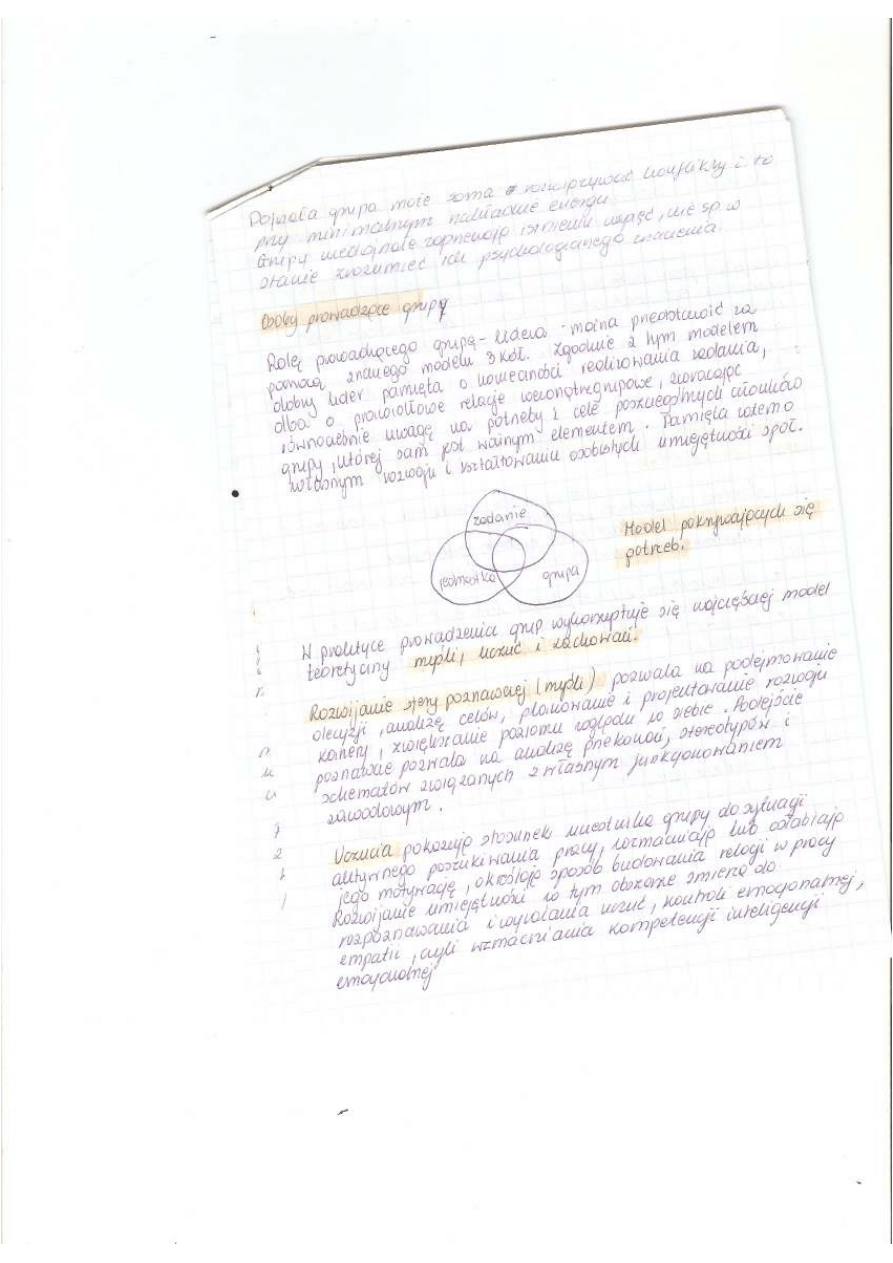 Dojrzała grupa może sama rozwiązywać konflikty i to
przy minimalnym nakładzie energii.
Grupy niedojrzałe zapewniają istnienie napięć, nie są w
stanie zrozumieć ich psychologicznego znaczenia.
Osoby prowadzące grupy
Rolę prowadzącego grupą - lidera - można przedstawić za
pomocą znanego modelu 3 kół. Zgodnie z tym modelem
dobry lider pamięta o konieczności realizowania zadania,
dba o prawidłowe relacje wewnątrzgrupowe, zwracając
równocześnie uwagę na potrzeby i cele poszczególnych członków
grupy, której sam jest ważnym elementem. Pamięta też o
własnym rozwoju i kształtowaniu osobistych umiejętności społ.
zadanie
jednostka
grupa
Model pokrywających się
potrzeb.
W praktyce prowadzenia grup wykorzystuje się najczęściej model
teoretyczny myśli, uczuć i zachowań.
Rozwijanie sfery poznawczej (myśli) pozwala na podejmowanie
decyzji, analizę celów, planowanie i projektowanie rozwoju
kariery, zwiększanie poziomu wglądu w siebie. Podejście
poznawcze pozwala na analizę przekonań, stereotypów i
schematów związanych z własnym funkcjonowaniem
zawodowym.
Uczucia pokazują stosunek uczestnika grupy do sytuacji
aktywnego poszukiwania pracy, wzmacniają lub osłabiają
jego motywację, określają sposób budowania relacji w pracy
Rozwijanie umiejętności w tym obszarze zmierza do
rozpoznawania i wyrażania uczuć, kontroli emocjonalnej,
empatii, czyli wzmacniania kompetencji inteligencji
emocjonalnej